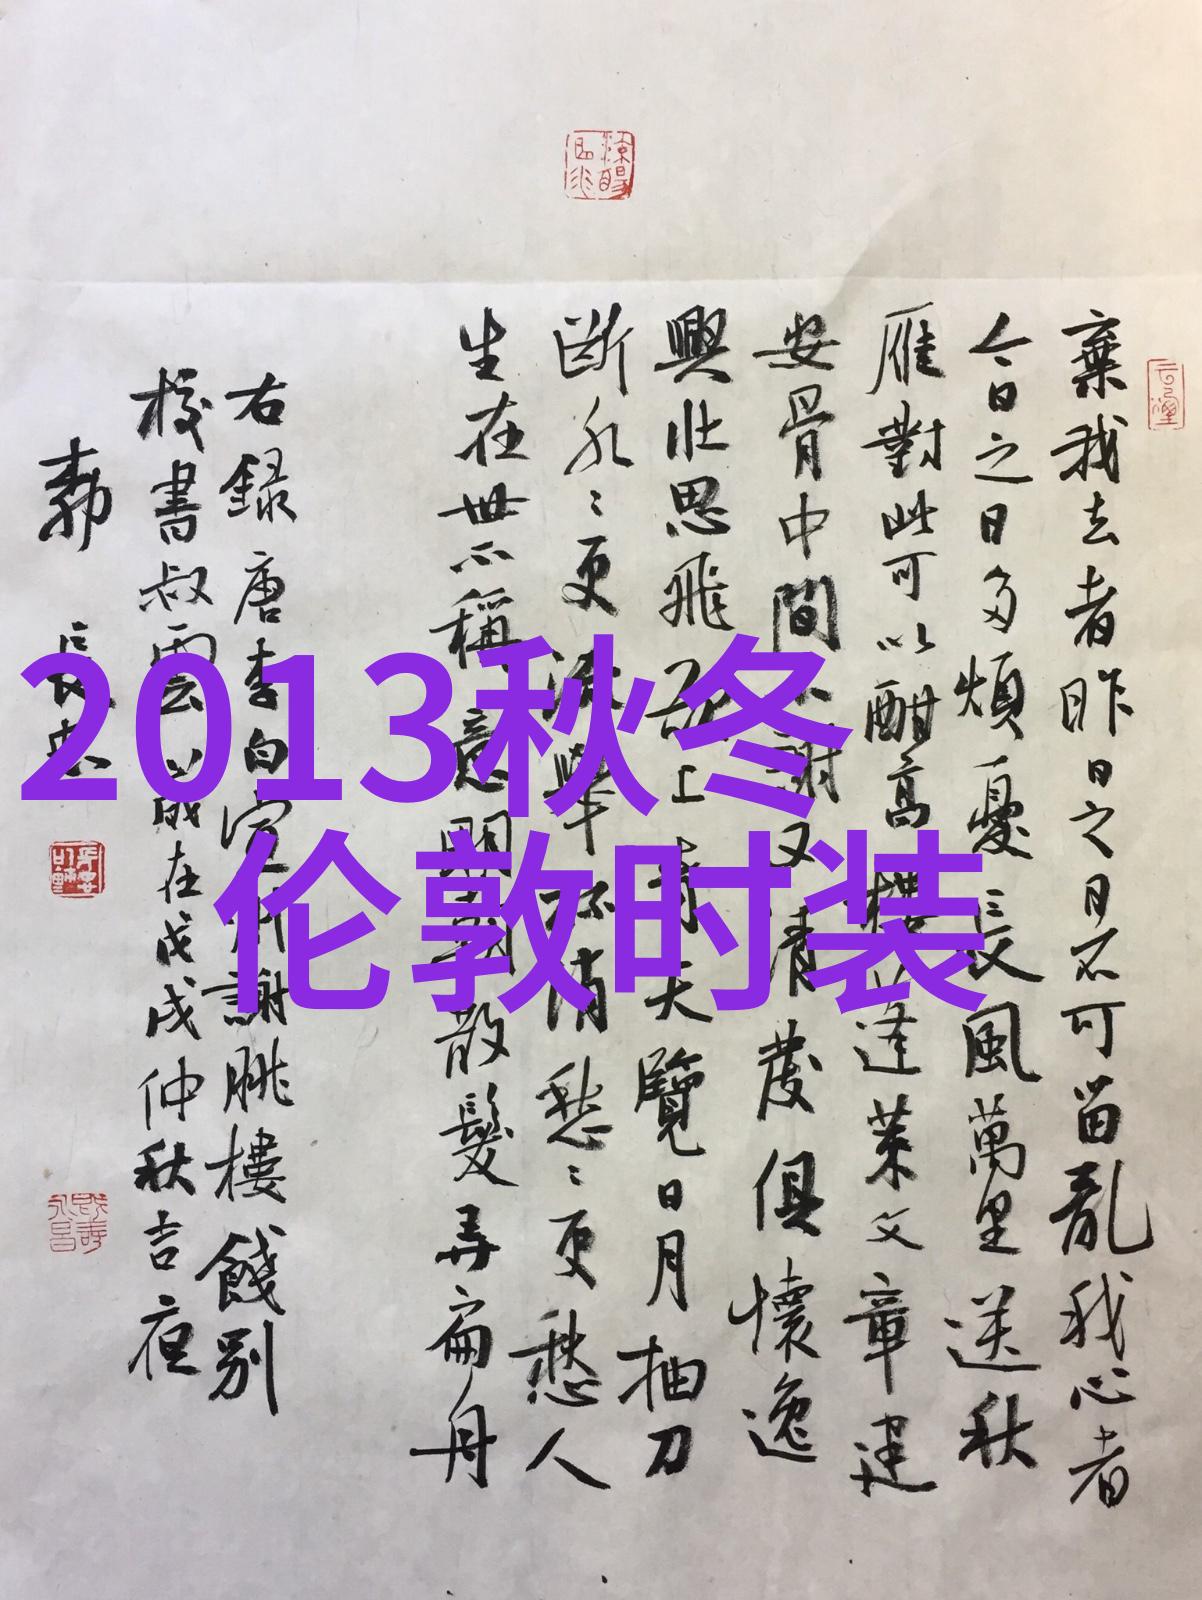 2013秋冬
伦敦时装
棄我去者昨日之日不可留亂我心者
今日之日多煩憂長風萬里送秋
雁對此可以酣高樓蓬萊文章建
安骨中間小謝又清發俱懷逸
興壯思飛欲上青天覽日月抽刀
断水〻更流舉杯消愁〻更愁人
生在世不稱意明朝散髮弄扁舟
右録唐李白宣州謝朓樓餞別
校書叔雲歲在戊戌仲秋吉夜
長